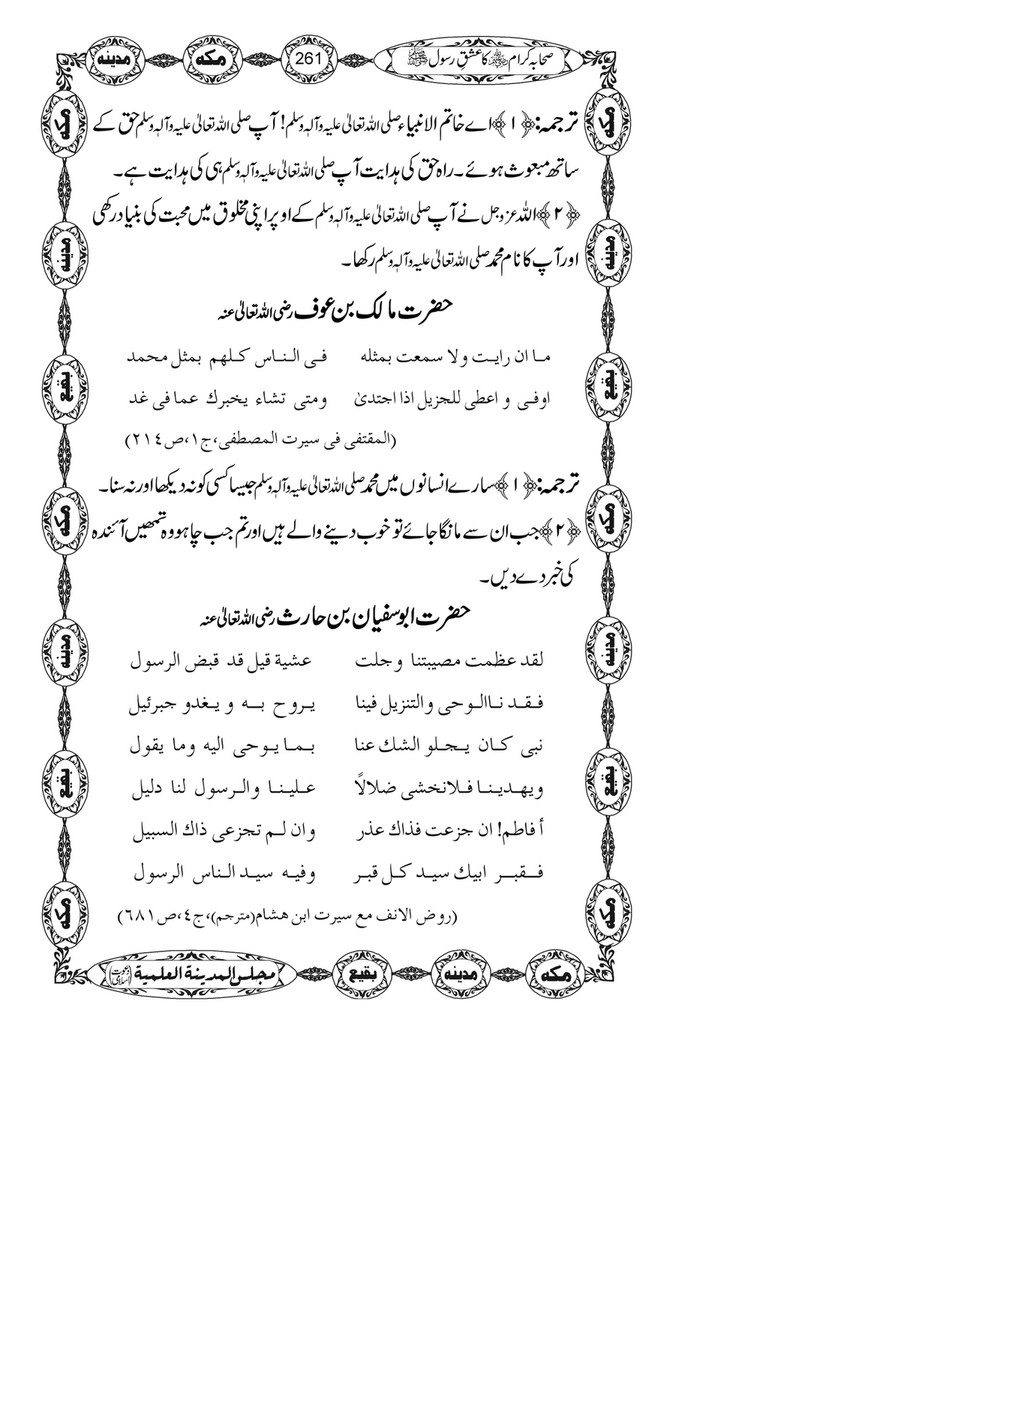 صحابہ کرام کا عشق رسول ﷺ 261 مکہ مدینہ
ترجمہ: ﴿۱﴾ اے خاتم الانبیاء صلی اللہ تعالیٰ علیہ وآلہٖ وسلم! آپ صلی اللہ تعالیٰ علیہ وآلہٖ وسلم حق کے
ساتھ مبعوث ہوئے۔ راہ حق کی ہدایت آپ صلی اللہ تعالیٰ علیہ وآلہٖ وسلم ہی کی ہدایت ہے۔
﴿۲﴾ اللہ عزوجل نے آپ صلی اللہ تعالیٰ علیہ وآلہٖ وسلم کے اوپر اپنی مخلوق میں محبت کی بنیاد رکھی
اور آپ کا نام محمد صلی اللہ تعالیٰ علیہ وآلہٖ وسلم رکھا۔
حضرت مالک بن عوف رضی اللہ تعالیٰ عنہ
ما ان رایت ولا سمعت بمثله فی الناس کلهم بمثل محمد
اوفی و اعطی للجزیل اذا اجتدیٰ ومتی تشاء یخبرك عما فی غد
(المقتفی فی سیرت المصطفی،ج۱،ص۲۱٤)
ترجمہ: ﴿۱﴾ سارے انسانوں میں محمد صلی اللہ تعالیٰ علیہ وآلہٖ وسلم جیسا کسی کو نہ دیکھا اور نہ سنا۔
﴿۲﴾ جب ان سے مانگا جائے تو خوب دینے والے ہیں اور تم جب چاہو وہ تمھیں آئندہ
کی خبر دے دیں۔
حضرت ابوسفیان بن حارث رضی اللہ تعالیٰ عنہ
لقد عظمت مصیبتنا وجلت عشیة قیل قد قبض الرسول
فقد ناالوحی والتنزیل فینا یروح به و یغدو جبرئیل
نبی کان یجلو الشك عنا بما یوحی الیه وما یقول
ویهدینا فلانخشی ضلالاً علینا والرسول لنا دلیل
أ فاطم! ان جزعت فذاك عذر وان لم تجزعی ذاك السبیل
فقبر ابیك سید کل قبر وفیه سید الناس الرسول
(روض الانف مع سیرت ابن هشام(مترجم)،ج٤،ص٦٨١)
مکہ مدینہ بقیع مجلس المدینة العلمیة (دعوت اسلامی)
مکہ
مدینہ
بقیع
مکہ
مدینہ
بقیع
مکہ
مکہ
مدینہ
بقیع
مکہ
مدینہ
بقیع
مکہ